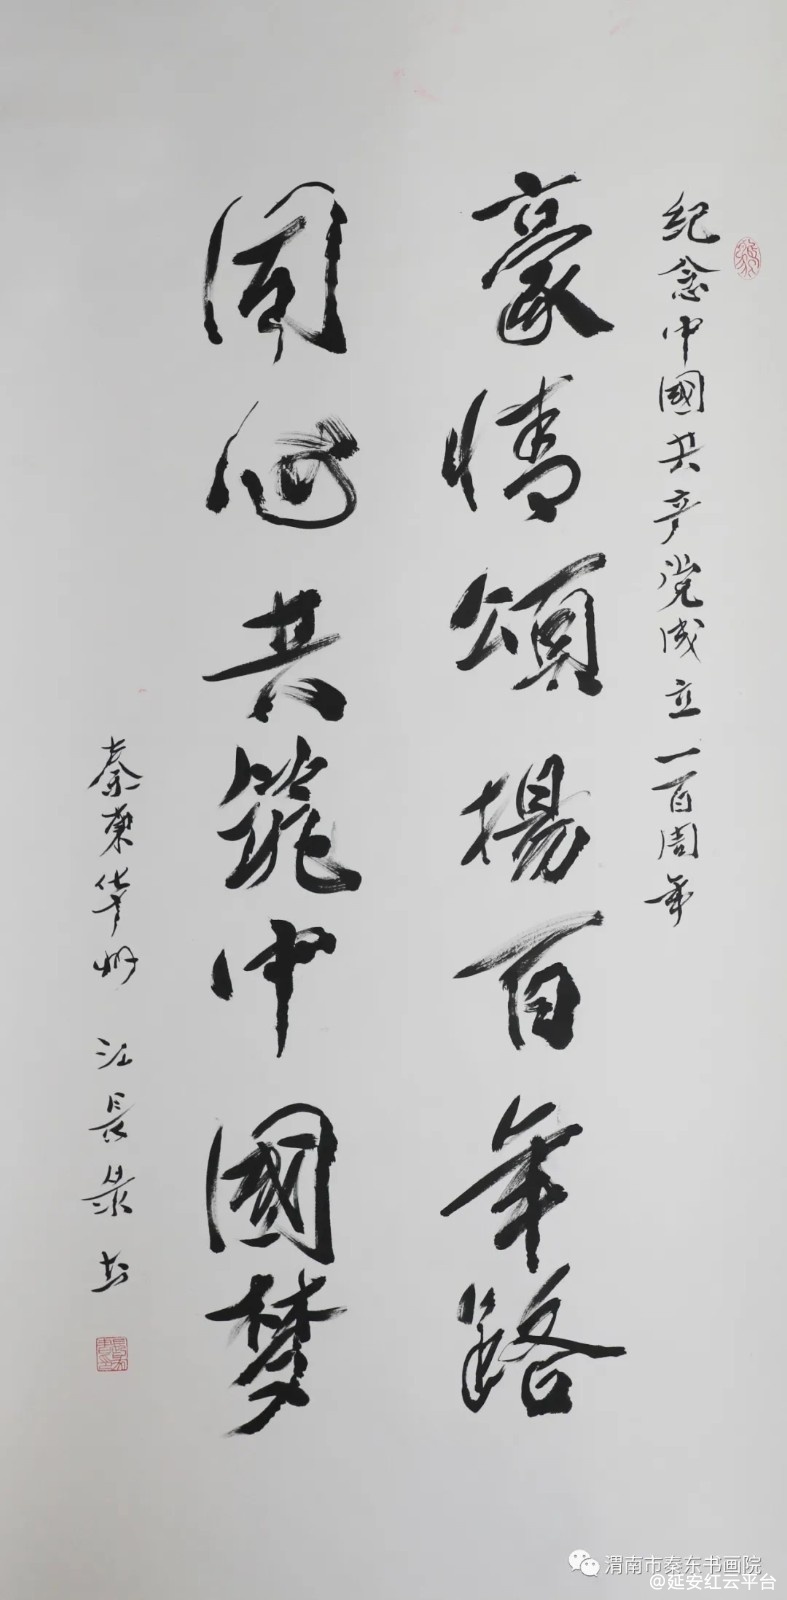 纪念中國共产党成立一百周年
豪情頌揚百年路
同心共筑中國梦
秦東华州 江長录书
渭南市秦东书画院
@延安红云平台